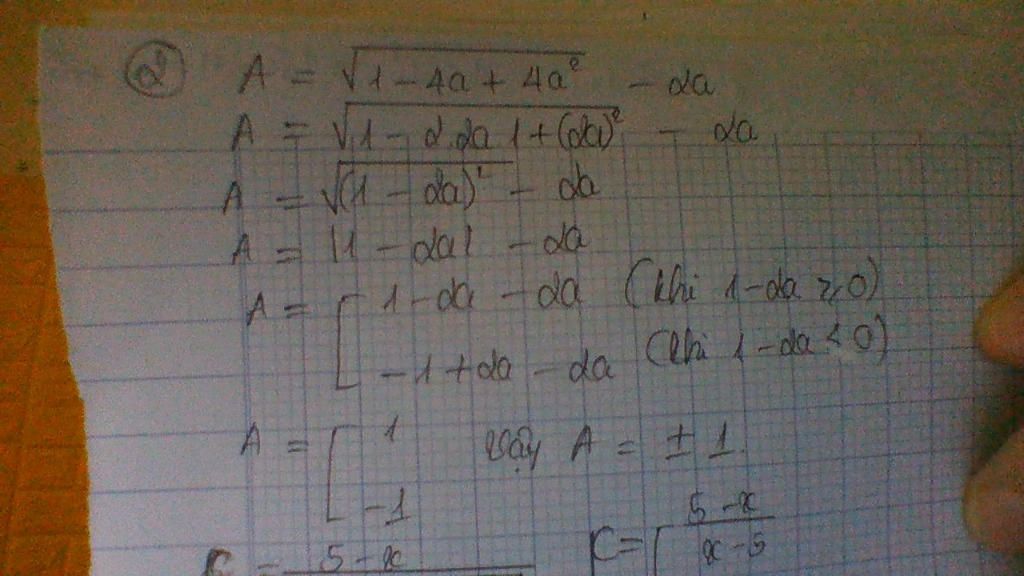 ② A = √(1 - 4a + 4a²) - 2a
A = √(1 - 2.2a 1 + (2a)²) - 2a
A = √((1 - 2a)²) - 2a
A = |1 - 2a| - 2a
A = [ 1 - 2a - 2a (khi 1 - 2a ≥ 0)
- 1 + 2a - 2a (khi 1 - 2a < 0)
A = [ 1 vậy A = ± 1.
- 1
C = 5 - x C = [ 5 - x
x - 5